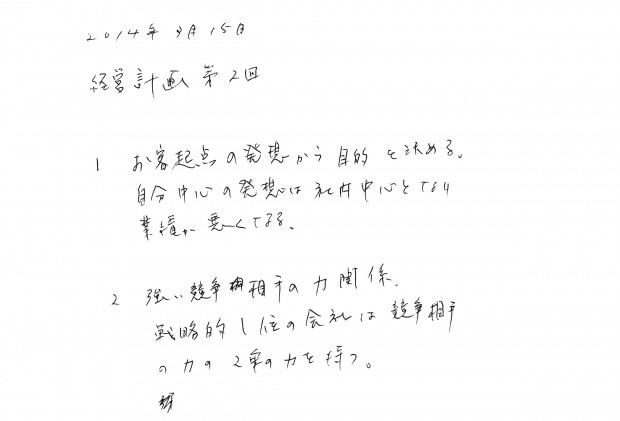 2014年3月15日
経営計画 第2回
1 お客起点の発想から目的を決める。
自分中心の発想は社内中心となり
業績が悪くなる。
2 強い競争相手の力関係.
戦略的1位の会社は競争相手
の力の2乗の力を持つ。